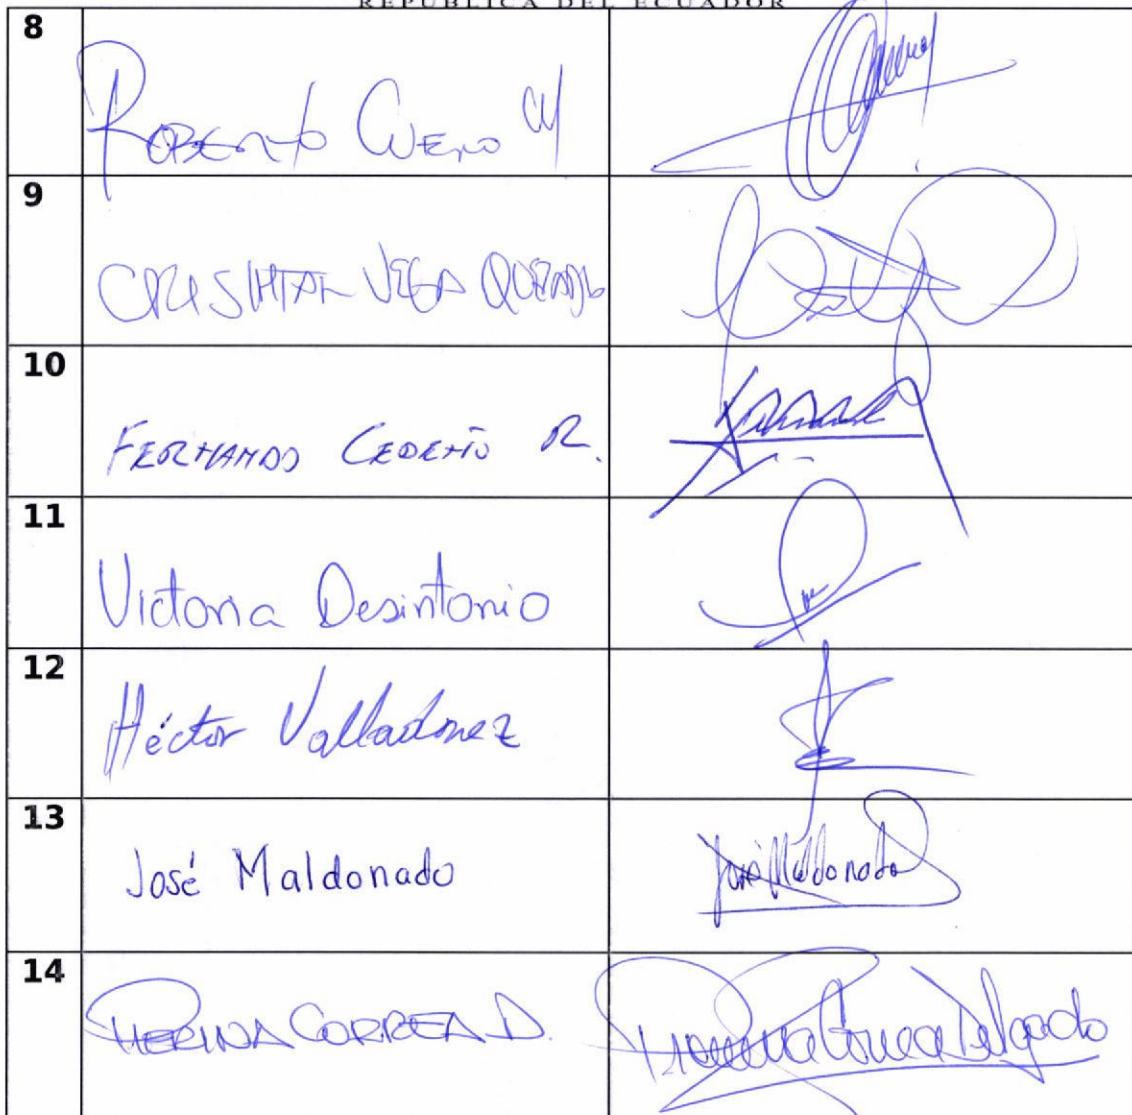 REPÚBLICA DEL ECUADOR
8
ROBERTO CUERO M
9
CRISTHIAN VEGA QUEZADA
10
FERNANDO CEDEÑO R.
11
Victoria Desintonio
12
Héctor Valladarez
13
José Maldonado José Maldonado
14
PIERINA CORREA D. Pierina Correa Delgado